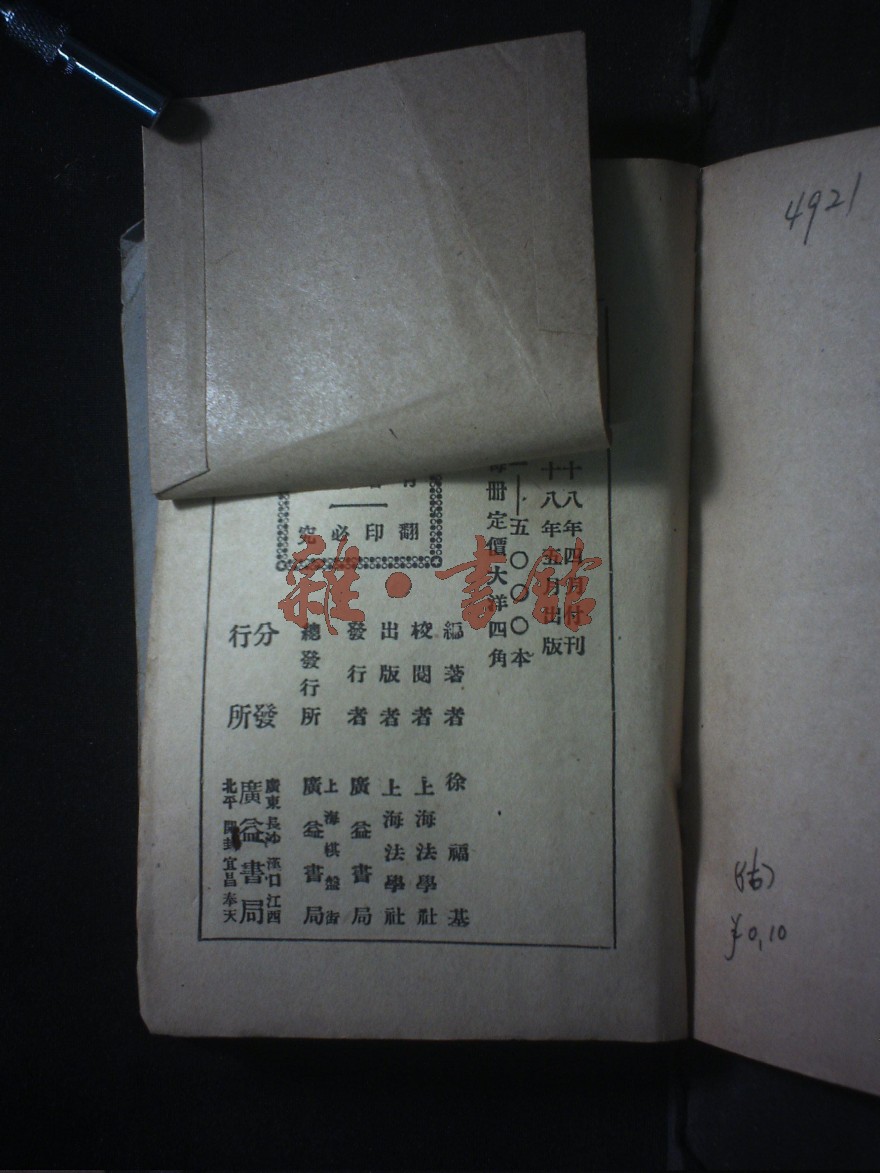 十八年四月付刊
十八年五月出版
一—五〇〇〇本
每册定價大洋四角
翻印必究
編著者 徐福基
校閱者 上海法學社
出版者 上海法學社
發行者 廣益書局
總發行所 上海棋盤街 廣益書局
分發行所 廣東 長沙 漢口 江西 廣益書局 北平 開封 宜昌 奉天
雜·書館
4921
¥0.10